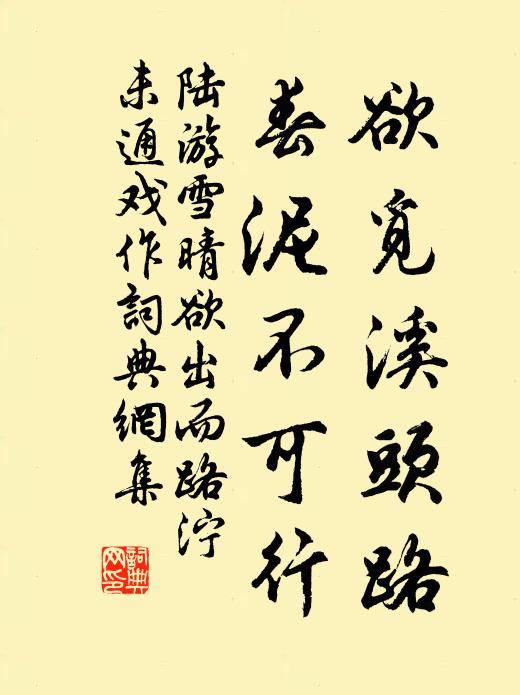 欲觅溪頭路
春泥不可行
陆游雪晴欲出而路泞
未通戏作詞典網集
詞典网印